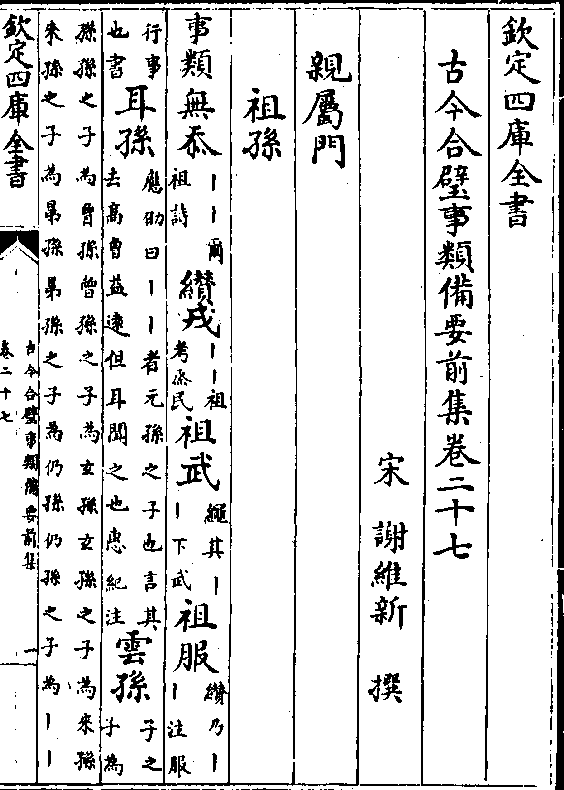 欽定四庫全書
古今合璧事類備要前集卷二十七
宋 謝維新 撰
親屬門
祖孫
事類無忝丨丨爾祖詩纘戎丨丨祖考烝民祖武繩其丨丨下武祖服纘乃丨丨注服
行事也書耳孫應劭曰丨丨者元孫之子也言其去高曾益遠但耳聞之也惠紀注雲孫子之子為
孫孫之子為曾孫曾孫之子為玄孫玄孫之子為來孫
來孫之子為晜孫晜孫之子為仍孫仍孫之子為丨丨
欽定四庫全書
古今合璧事類備要前集
卷二十七
一